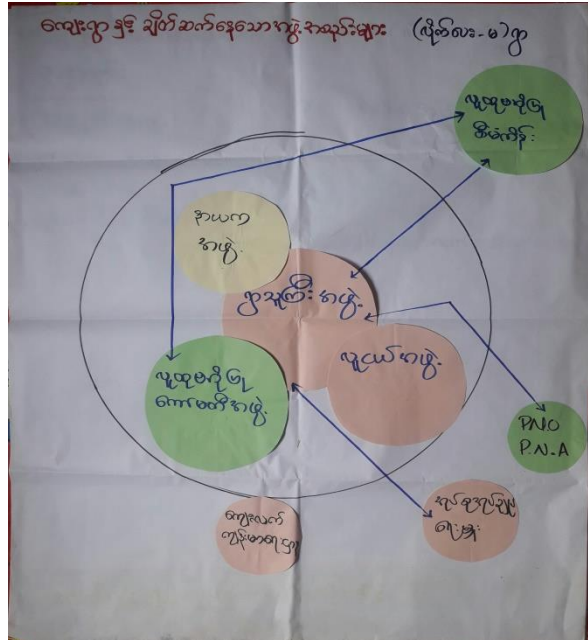 ကျေးရွာ နှင့် ချိတ်ဆက်နေသော အဖွဲ့အစည်းများ (လိုက်လေး-မ) ရွာ
လူထုဗဟိုပြု
စီမံကိန်း
နာယက
အဖွဲ့
ရွာသူကြီးအဖွဲ့
လူငယ်အဖွဲ့
လူထုဗဟိုပြု
ကော်မတီအဖွဲ့
PNO
P.N.A
အုပ်စုအုပ်ချုပ်
ရေးမှူး
ကျေးလက်
ကျန်းမာရေးဌာန